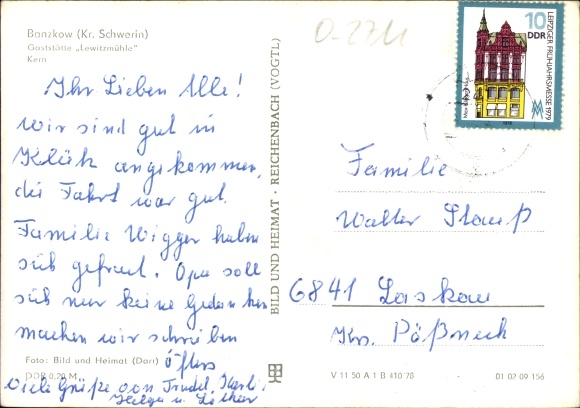 Banzkow (Kr. Schwerin)
Gaststätte „Lewitzmühle"
Kern
Ihr Lieben Alle!
wir sind gut in
Klütz angekommen,
die Fahrt war gut.
Familie Wigger haben
sich gefreut. Opa soll
sich nur keine Gedanken
machen wir schreiben
öfters
Viele Grüße von Trudel, Karli,
Helga u. Lothar
Foto: Bild und Heimat (Dari)
DDR 0,20 M
BILD UND HEIMAT · REICHENBACH (VOGTL)
0-2711
10
DDR
LEIPZIGER FRÜHJAHRSMESSE 1979
1979
Familie
Walter Stauß
6841 Laskau
Krs. Pößneck
V 11 50 A 1 B 410/78
01 02 09 156